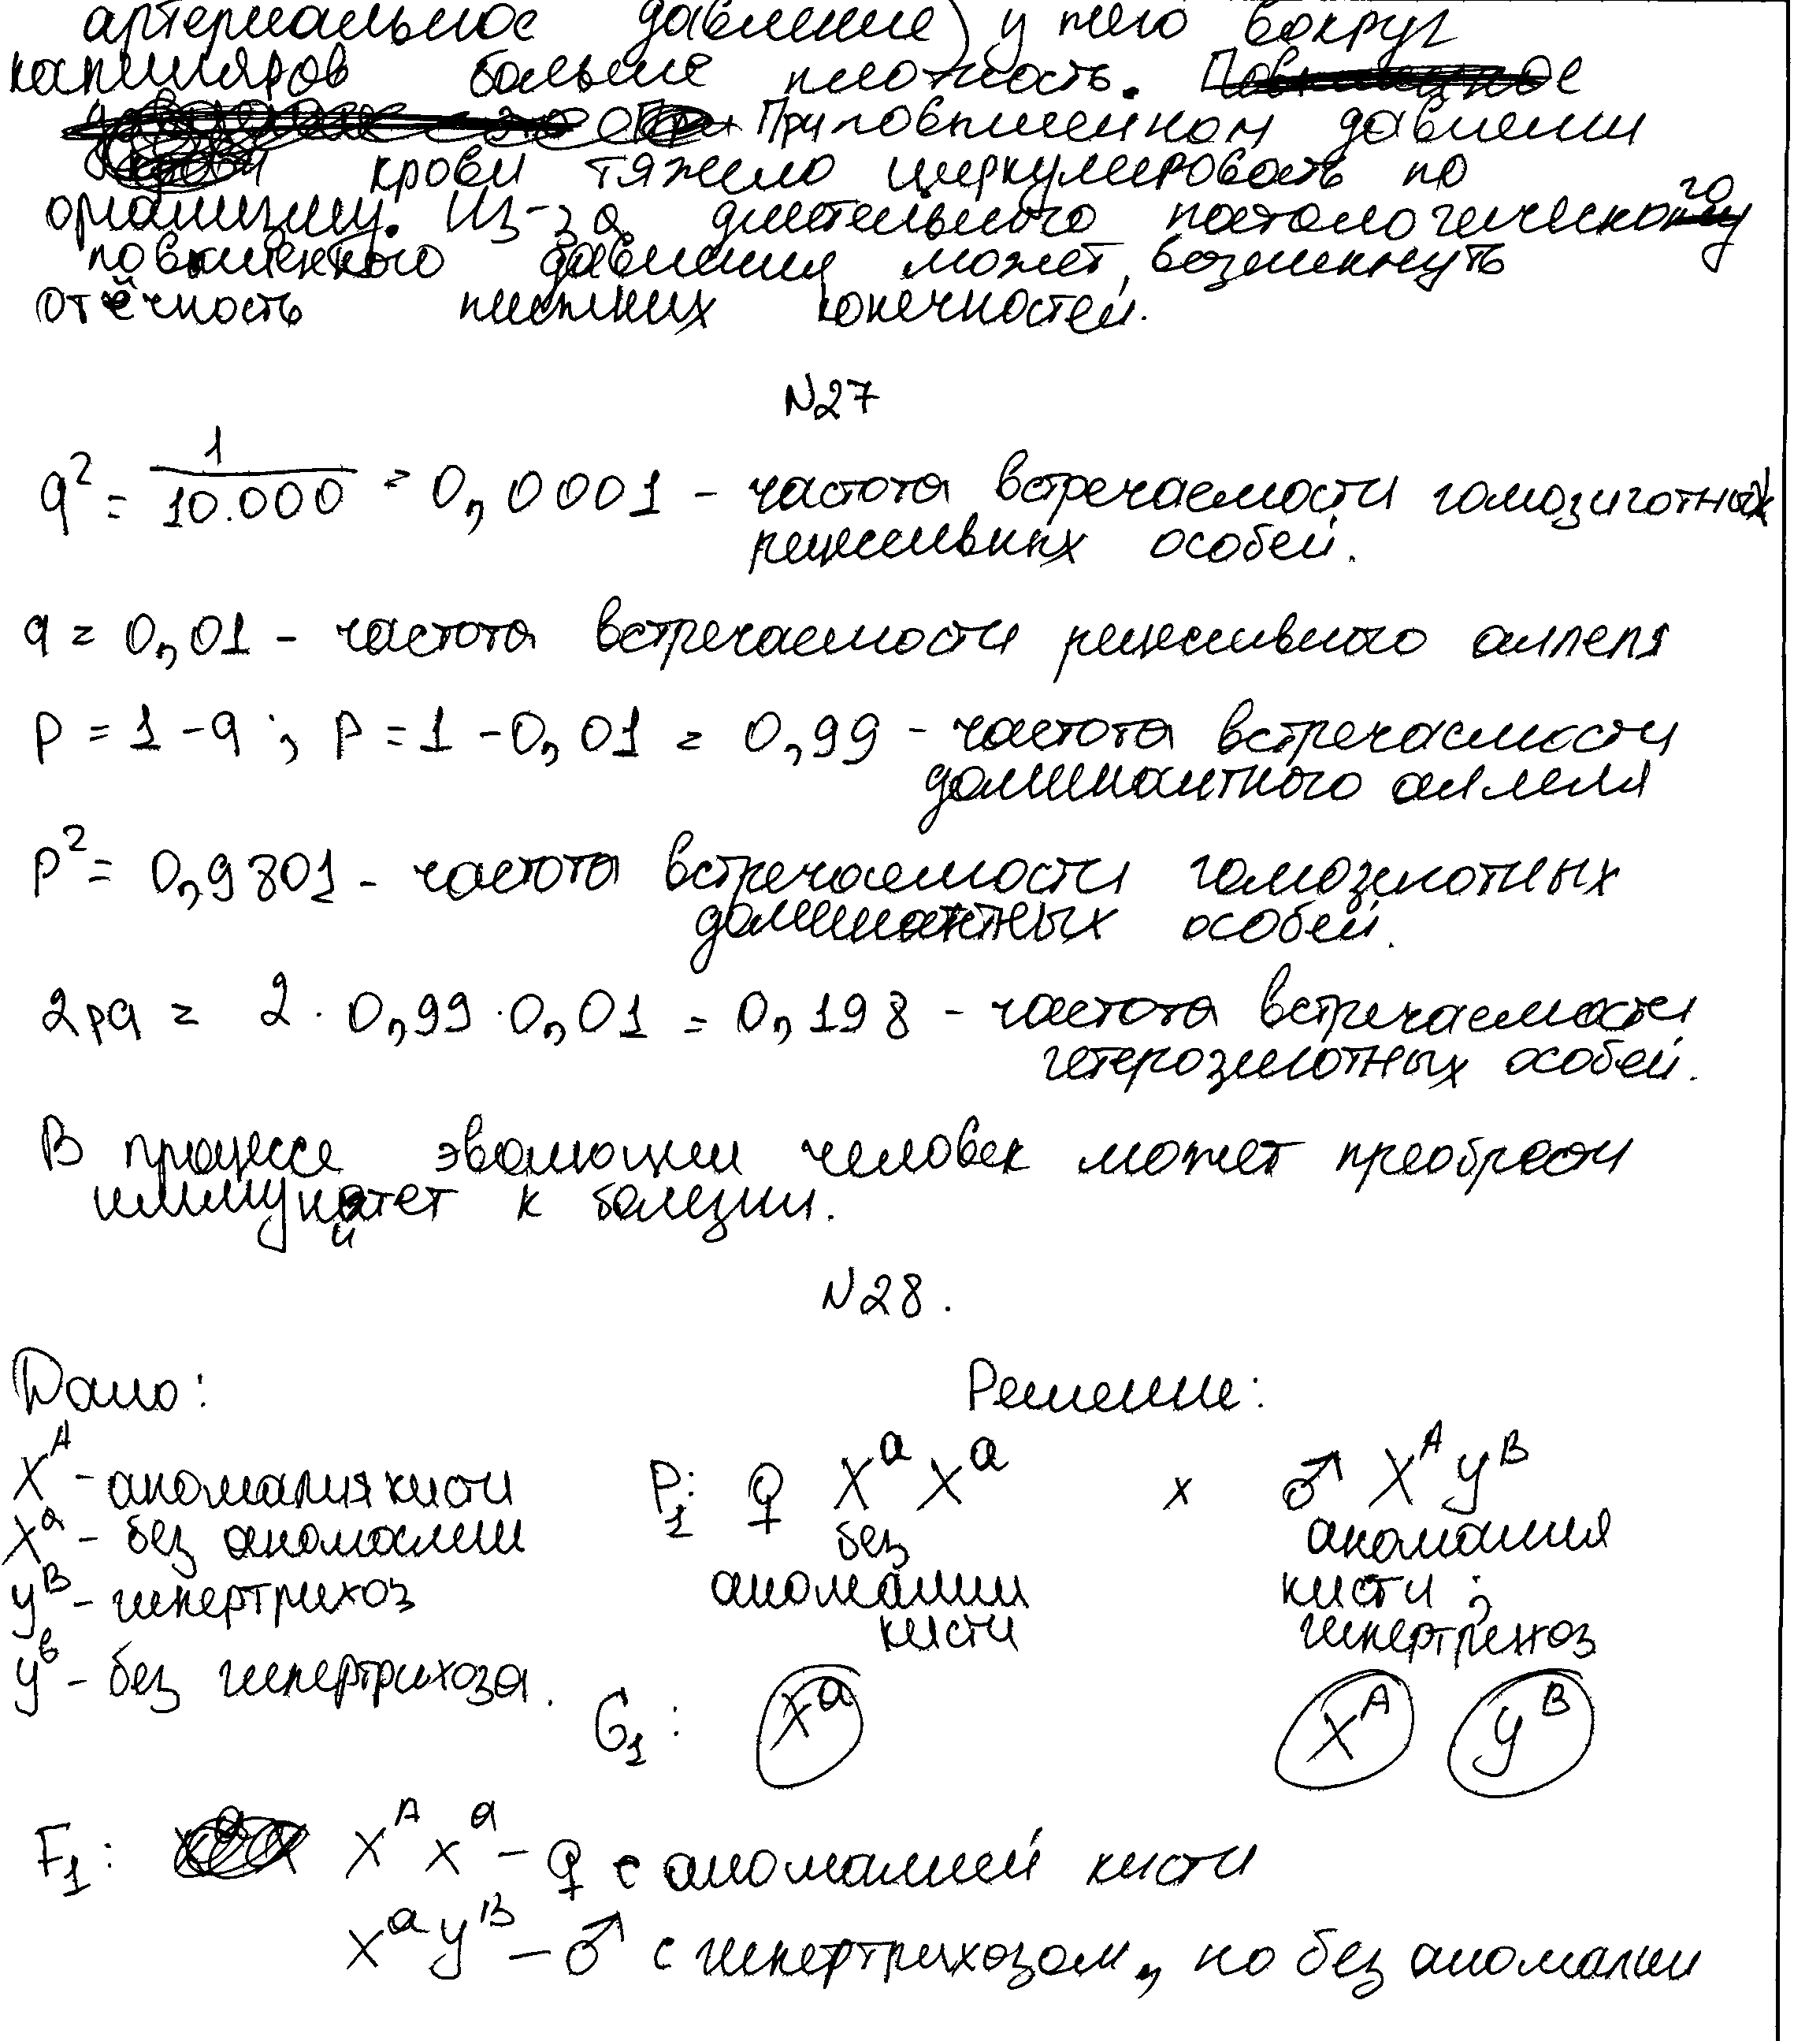 артериальное давление) у него вокруг
капилляров больше плотность.
При повышенном давлении
крови тяжело циркулировать по
организму. Из-за длительного патологического
повышенного давления может возникнуть
отёчность нижних конечностей.
N27
q² = 1/10.000 = 0,0001 - частота встречаемости гомозиготных
рецессивных особей.
q = 0,01 - частота встречаемости рецессивного аллеля
p = 1 - q ; p = 1 - 0,01 = 0,99 - частота встречаемости
доминантного аллеля
p² = 0,9801 - частота встречаемости гомозиготных
доминантных особей.
2pq = 2 · 0,99 · 0,01 = 0,198 - частота встречаемости
гетерозиготных особей.
В процессе эволюции человек может преобрести
иммунитет к болезни.
N28.
Дано: Решение:
Xᴬ - аномалия кисти
Xᵃ - без аномалии
yᴮ - гипертрихоз
yᵇ - без гипертрихоза.
P₁: ♀ XᵃXᵃ x ♂ Xᴬyᴮ
без аномалии кисти
аномалия кисти ; гипертрихоз
G₁: Xᵃ Xᴬ yᴮ
F₁: XᴬXᵃ - ♀ с аномалией кисти
Xᵃyᴮ - ♂ с гипертрихозом, но без аномалии